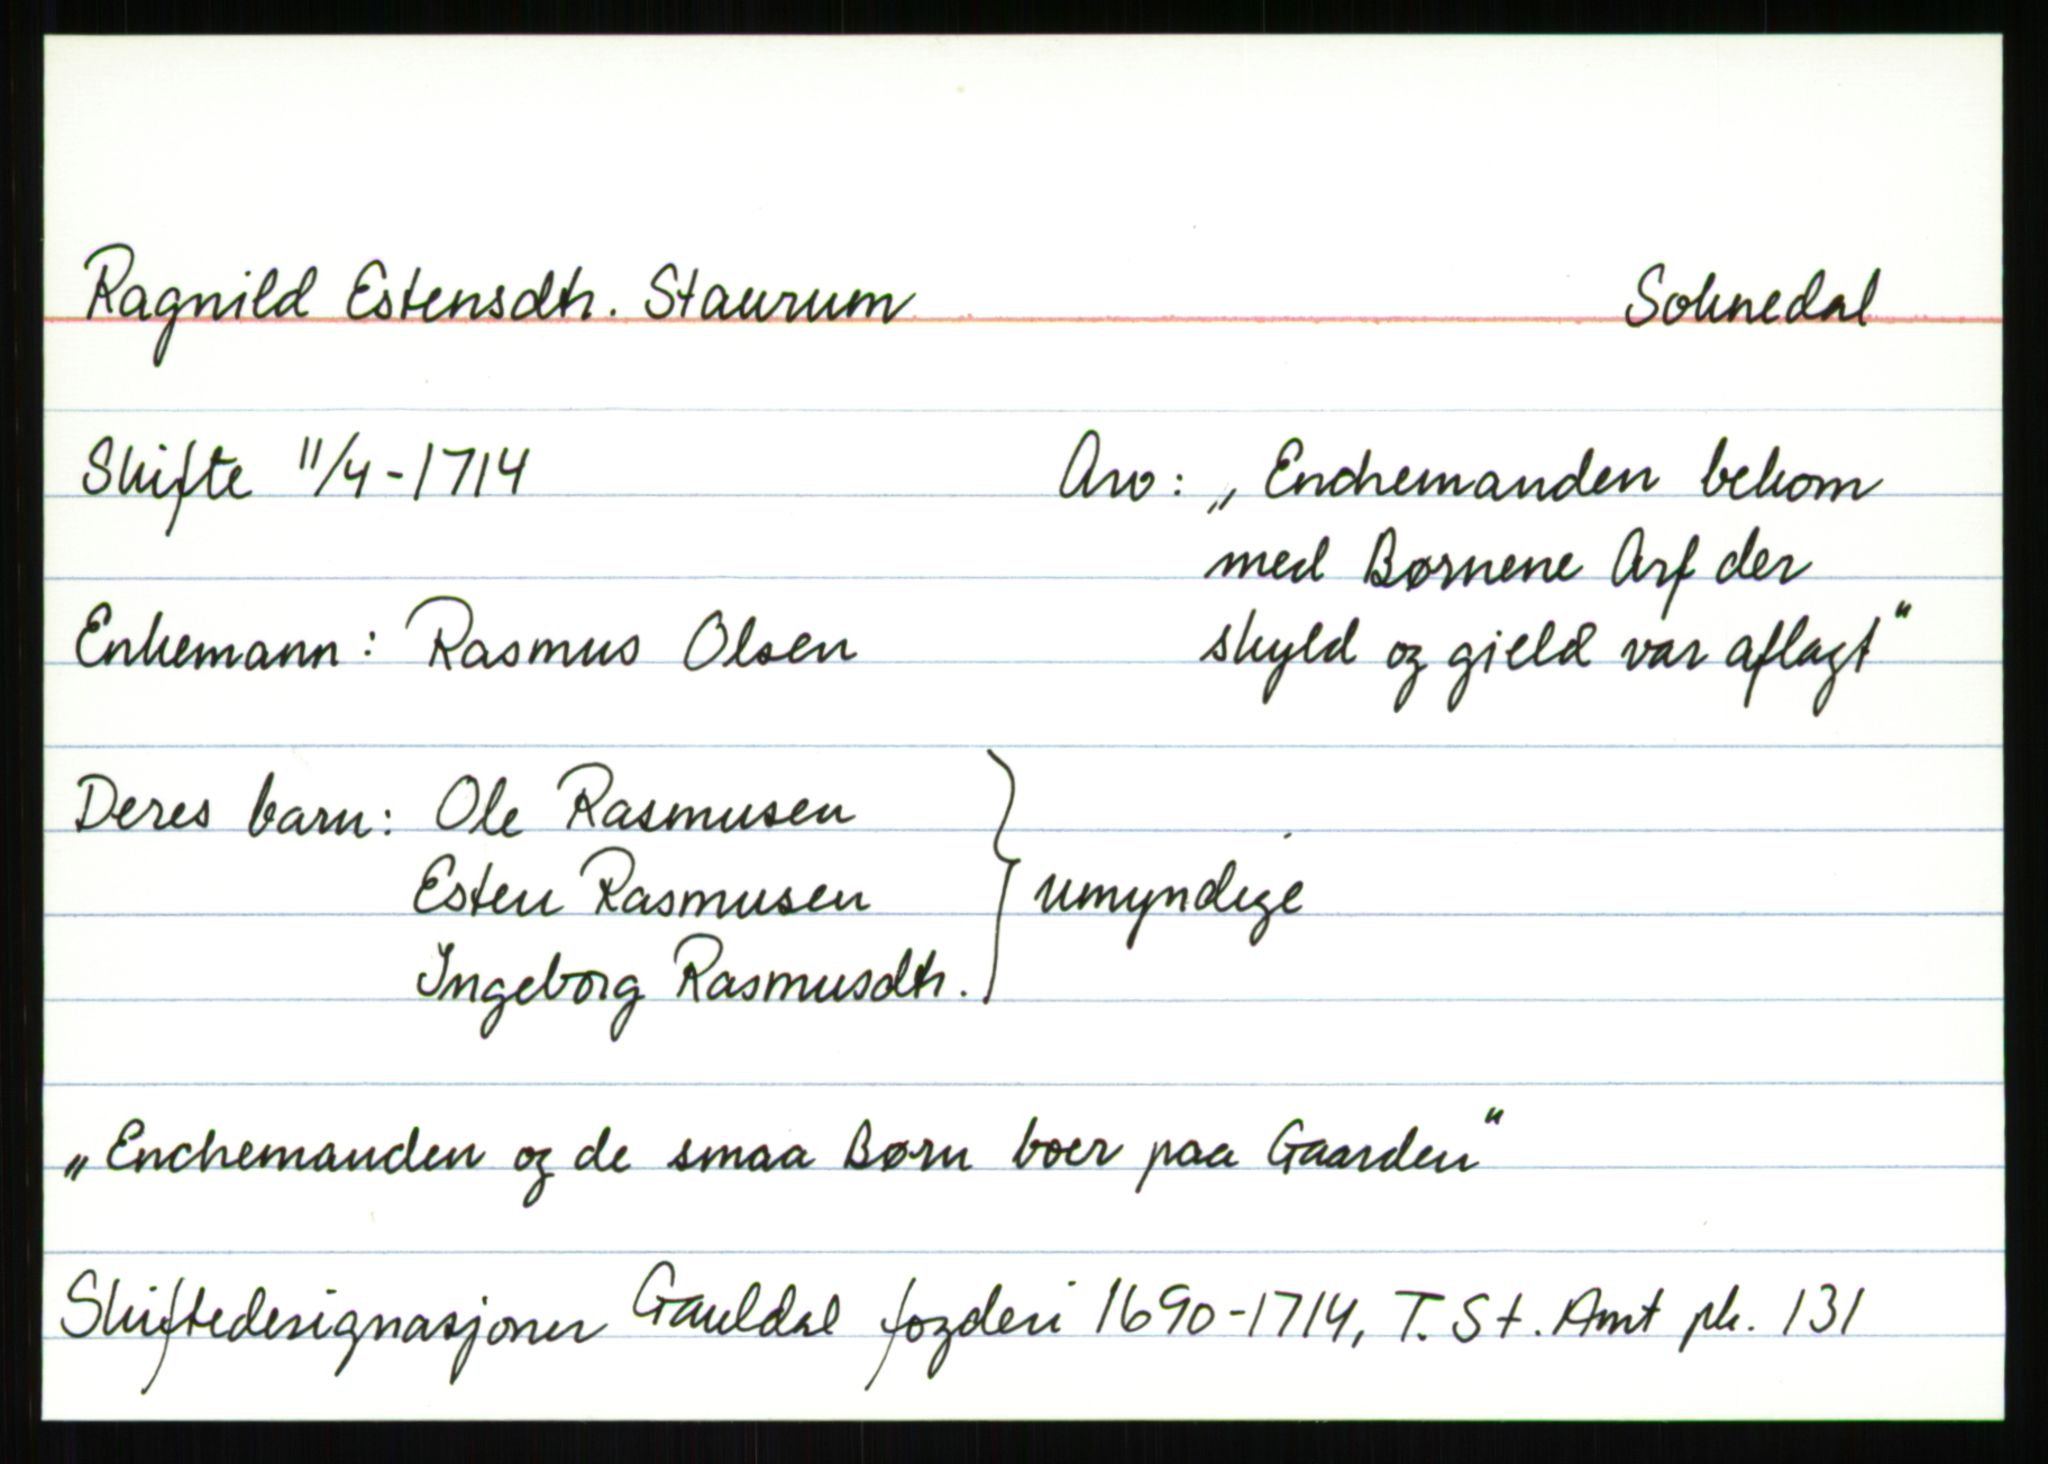 Ragnild Estensdtr. Staurum Soknedal
Skifte 11/4-1714
Arv: „Enchemanden bekom
med Børnene Arf der
skyld og gield var aflagt“
Enkemann: Rasmus Olsen
Deres barn: Ole Rasmusen
Esten Rasmusen
Ingeborg Rasmusdtr.
umyndige
„Enchemanden og de smaa Børn boer paa Gaarden“
Skiftedesignasjoner Gauldal fogderi 1690-1714, T. St. Amt pk. 131